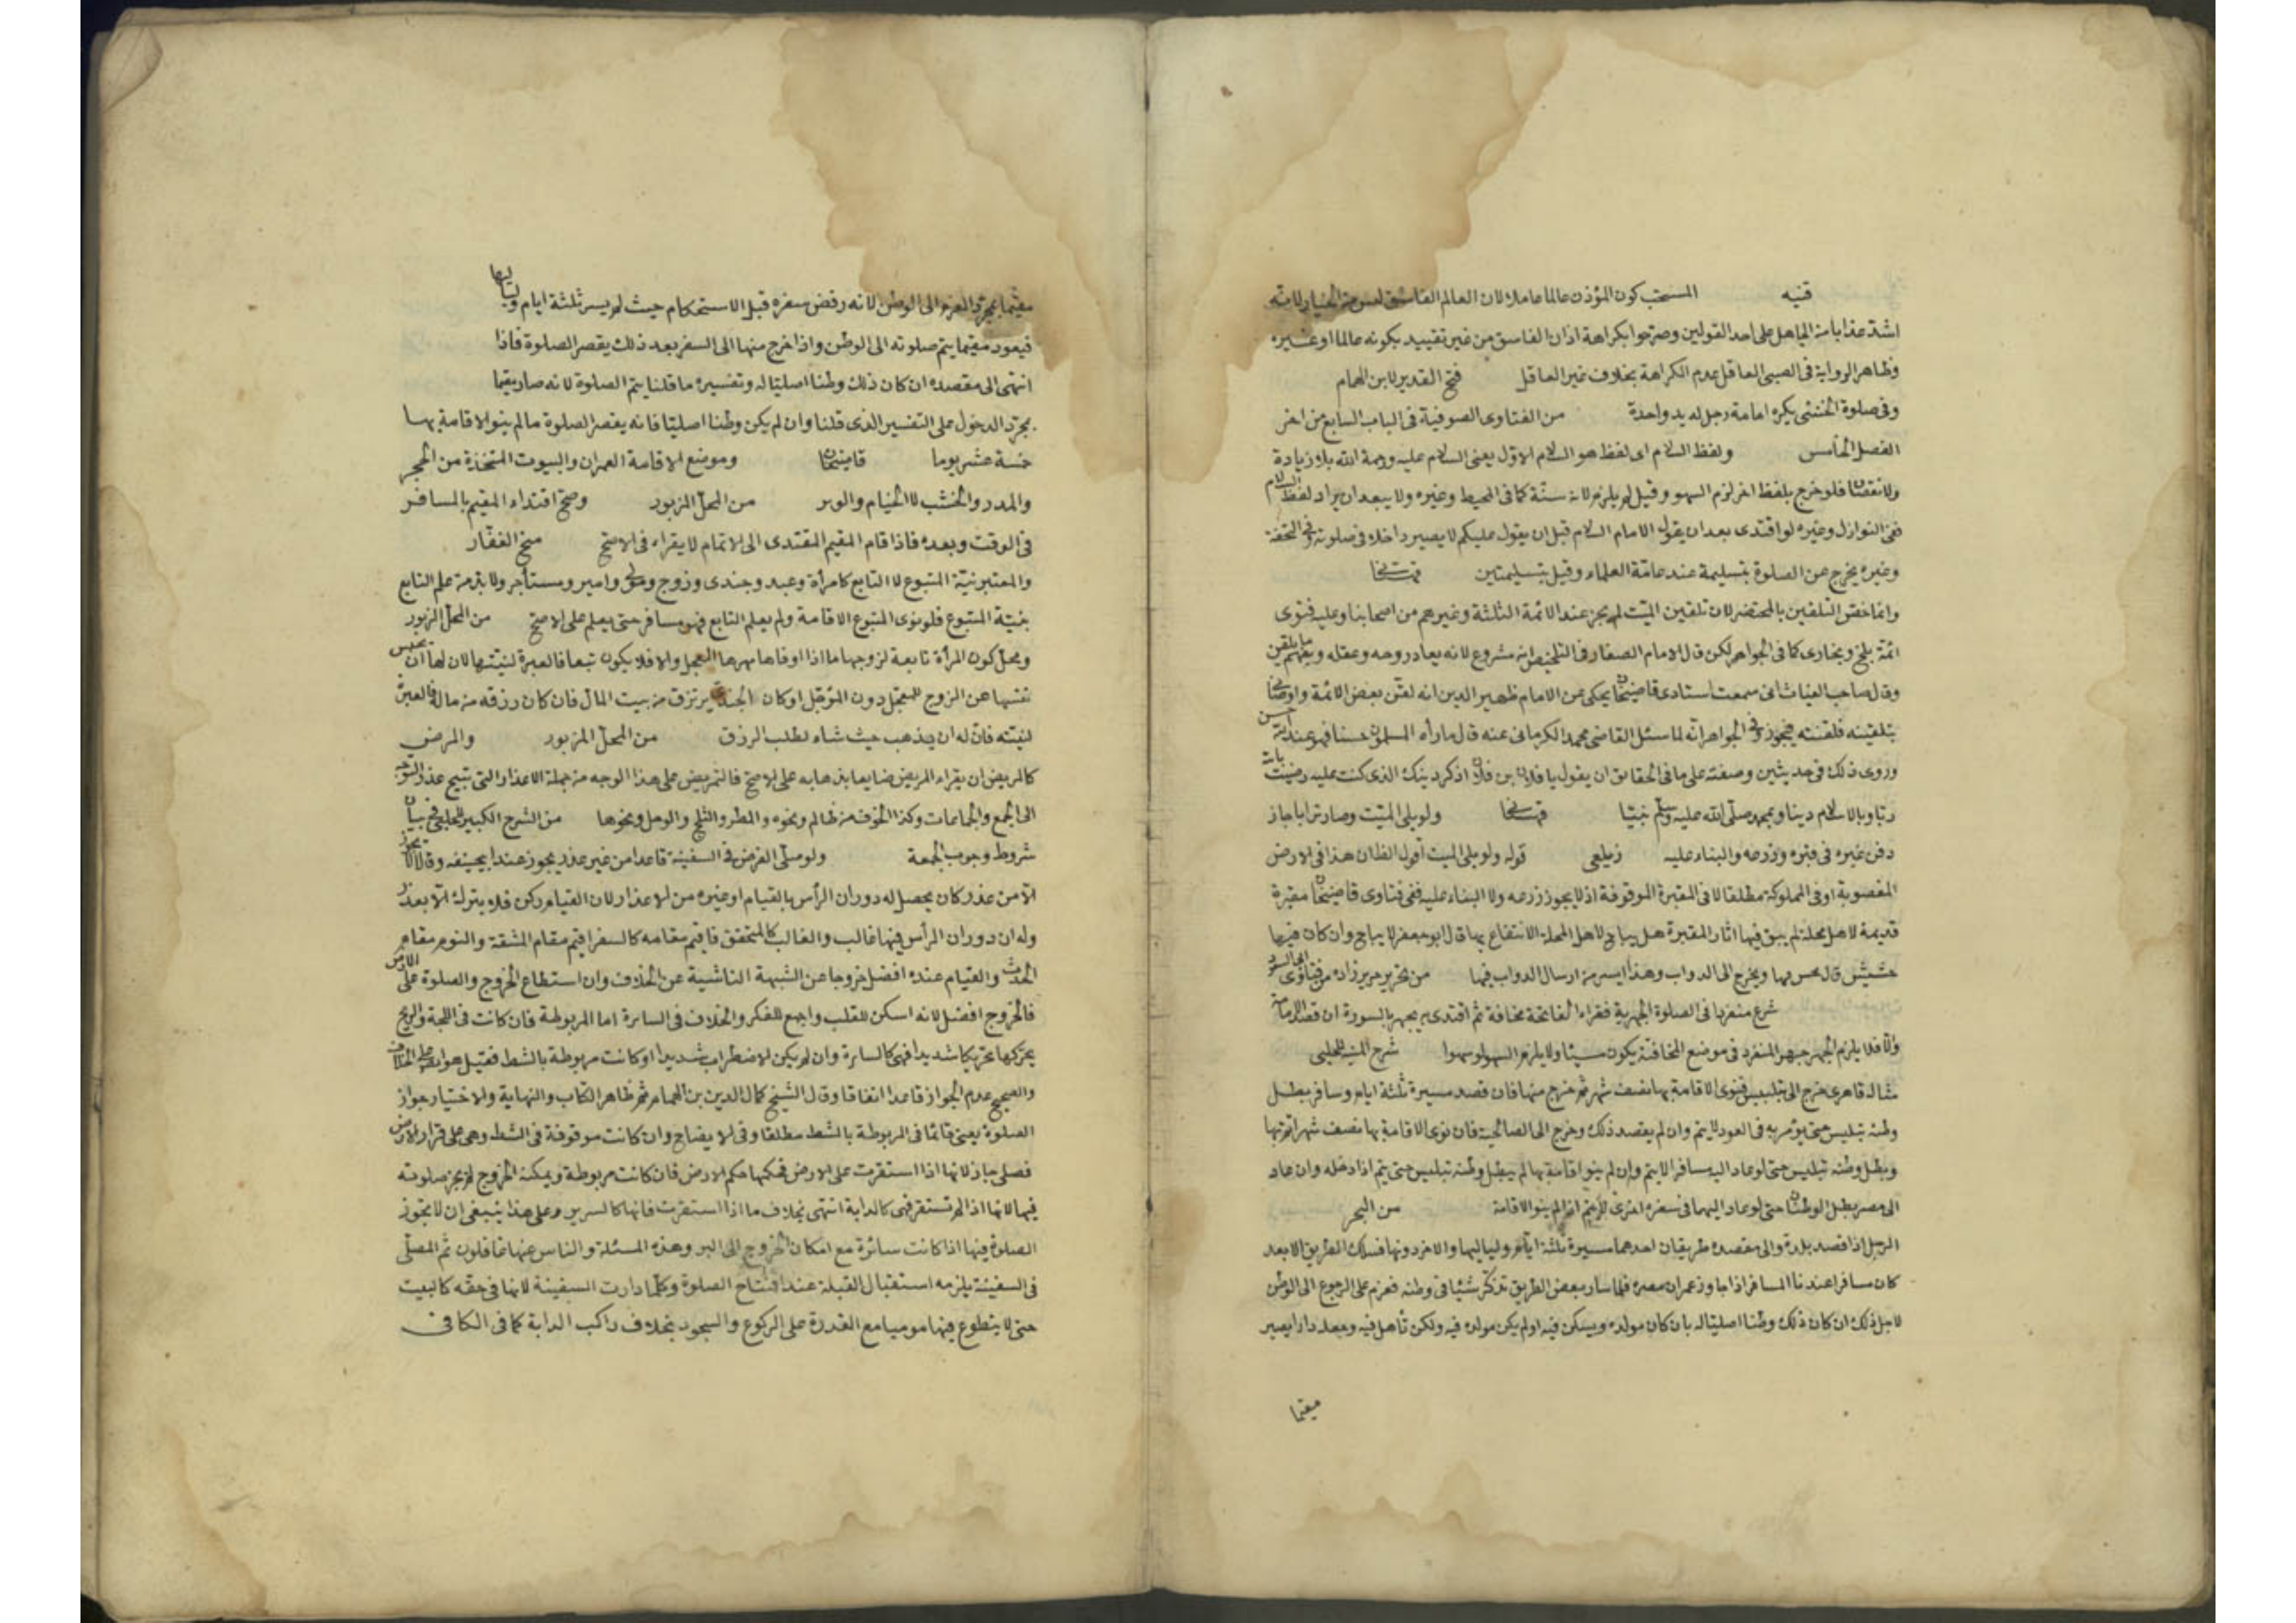 قنيه المستحب كون المؤذن عالما عاملا لان العالم الفاسق ليس من الخيار لانه
اشد عذابا من الجاهل على احد القولين وصرحوا بكراهة اذان الفاسق من غير تقييد بكونه عالما او غيره
وظاهر الرواية فى الصبى العاقل عدم الكراهة بخلاف غير العاقل فتح القدير لابن الهمام
وفى صلوة الخنثى يكره امامة رجل له يد واحدة من الفتاوى الصوفية فى الباب السابع من اخر
الفصل الخامس ولفظ السلام اى لفظ هو السلام الاول يعنى السلام عليه ورحمة الله بلا زيادة
ولا نقصان فلو خرج بلفظ اخر لزم السهو وقيل لم يلزم لانه سنة كما فى المحيط وغيره ولا يبعد ان يراد لفظ السلام
ففى النوازل وغيره لو اقتدى بعد ان يقول الامام السلام قبل ان يقول عليكم لا يصير داخلا فى صلوته وفى التحفة
وغيره يخرج عن الصلوة بتسليمة عند عامة العلماء وقيل بتسليمتين قهستانى
وانما خص التلقين بالمحتضر لان تلقين الميت لم يجز عند الائمة الثلثة وغيرهم من اصحابنا وعليه فتوى
ائمة بلخ وبخارى كما فى الجواهر لكن قال الامام الصفار فى التلخيص انه مشروع لانه يعاد روحه وعقله ويفهم ما يلقن
وقال صاحب الغياث انى سمعت استادى قاضيخان يحكى عن الامام ظهير الدين انه لقن بعض الائمة واوصانى
بتلقينه فلقنته فيجوز وفى الجواهر انه لما سئل القاضى محمد الكرمانى عنه قال ما رأه المسلمون حسنا فهو عند الله حسن
وروى ذلك فى حديثين وصفته على ما فى الحقائق ان يقول يا فلان بن فلان اذكر دينك الذى كنت عليه رضيت بالله
ربا وبالاسلام دينا وبمحمد صلى الله عليه وسلم نبيا قهستانى ولو بلى الميت وصار ترابا جاز
دفن غيره فى قبره وزرعه والبناء عليه زيلعى قوله ولو بلى الميت اقول الظان هذا فى الارض
المغصوبة او فى المملوكة مطلقا لا فى المقبرة الموقوفة اذ لا يجوز زرعه ولا البناء عليه ففى فتاوى قاضيخان مقبرة
قديمة لاهل محلة لم يبق فيها اثار المقبرة هل يباح لاهل المحلة الانتفاع بها قال ابو جعفر لا يباح وان كان فيها
حشيش قال يحس بها ويخرج الى الدواب وهذا ايسر من ارسال الدواب فيها من تحرير زاده من فتاوى ابى السعود
شرع منفردا فى الصلوة الجهرية فقراء الفاتحة مخافة ثم اقتدى به يجهر بالسورة ان قصد الامامة
والا فلا يلزم الجهر جهر المنفرد فى موضع المخافتة يكون مسيئا ولا يلزم السهو لو سهوا شرح المنيه للحلبى
مثاله قاهرى خرج الى بلبيس فنوى الاقامة بها نصف شهر ثم خرج منها فان قصد مسيرة ثلثة ايام وسافر بطل
وطنه بلبيس حتى لو مر به فى العود لا يتم وان لم يقصد ذلك وخرج الى الصالحية فان نوى الاقامة بها نصف شهر اتم بها
وبطل وطنه بلبيس حتى لو عاد اليه مسافرا لا يتم وان لم ينو اقامة بها لم يبطل وطنه بلبيس حتى يتم اذا دخله وان عاد
الى مصر بطل الوطنان حتى لو عاد اليهما فى سفره اخرى لم يتم اذا لم ينو الاقامة من البحر
الرجل اذا قصد بلدة والى مقصده طريقان احدهما مسيرة ثلثة ايام ولياليها والاخر دونها فسلك الطريق الابعد
كان مسافرا عندنا المسافر اذا جاوز عمران مصره فلما سار بعض الطريق تذكر شيئا فى وطنه فعزم على الرجوع الى الوطن
لاجل ذلك ان كان ذلك وطنا اصليا له بان كان مولده ويسكن فيه او لم يكن مولده فيه ولكن تأهل فيه وجعله دارا يصير
مقيما
مقيما بمجرد العزم الى الوطن لانه رفض سفره قبل الاستحكام حيث لم يسر ثلثة ايام ولياليها
فيعود مقيما يتم صلوته الى الوطن واذا خرج منها الى السفر بعد ذلك يقصر الصلوة فاذا
انتهى الى مقصده ان كان ذلك وطنا اصليا له وتفسيره ما قلنا يتم الصلوة لانه صار مقيما
بمجرد الدخول على التفسير الذى قلنا وان لم يكن وطنا اصليا فانه يقصر الصلوة ما لم ينو الاقامة بها
خمسة عشر يوما قاضيخان وموضع الاقامة العمران والبيوت المتخذة من الحجر
والمدر والخشب لا الخيام والوبر من المحل المزبور وصح اقتداء المقيم بالمسافر
فى الوقت وبعده فاذا قام المقيم المقتدى الى الاتمام لا يقراء فى الاصح منح الغفار
والمعتبر نية المتبوع لا التابع كامرأة وعبد وجندى وزوج ومولى وامير ومستأجر ولا بد من علم التابع
بنية المتبوع فلو نوى المتبوع الاقامة ولم يعلم التابع فهو مسافر حتى يعلم على الاصح من المحل المزبور
ومحل كون المرأة تابعة لزوجها ما اذا اوفاها مهرها المعجل والا فلا يكون تبعا فالعبرة لنيتها لان لها ان تحبس
نفسها عن الزوج للمعجل دون المؤجل او كان الجندى يرتزق من بيت المال فان كان رزقه من ماله فالعبرة
لنيته فان له ان يذهب حيث شاء لطلب الرزق من المحل المزبور والمرض
كالمريض ان يقراء المريض ضايعا بذهابه على الاصح فالتمريض على هذا الوجه من جملة الاعذار التى تبيح عذر التوجه
الى الجمع والجماعات وكذا الخوف من ظالم ونحوه والمطر والثلج والوحل ونحوها من الشرح الكبير للحلبى فى بيان
شروط وجوب الجمعة ولو صلى الفرض فى السفينة قاعدا من غير عذر يجوز عند ابى حنيفه وقالا لا يجوز
الا من عذر كان يحصل له دوران الرأس بالقيام او غيره من الاعذار لان القيام ركن فلا يترك الا بعذر
وله ان دوران الرأس فيها غالب والغالب كالمتحقق فاقيم مقامه كالسفر اقيم مقام المشقة والنوم مقام
الحدث والقيام عنده افضل خروجا عن الشبهة الناشية عن الخلاف وان استطاع الخروج والصلوة على الارض
فالخروج افضل لانه اسكن للقلب واجمع للفكر والخلاف فى السائرة اما المربوطة فان كانت فى اللجة والريح
يحركها تحريكا شديدا فهى كالسايرة وان لم يكن الاضطراب شديدا او كانت مربوطة بالشط فقيل هو ايضا على الخلاف
والصحيح عدم الجواز قاعدا اتفاقا وقال الشيخ كمال الدين بن الهمام ثم ظاهر الكتاب والنهاية والاختيار جواز
الصلوة يعنى قائما فى المربوطة بالشط مطلقا وفى الايضاح وان كانت موقوفة فى الشط وهى على قرار الارض
فصلى جاز لانها اذا استقرت على الارض فحكمها حكم الارض فان كانت مربوطة ويمكنه الخروج لم يجز صلوته
فيها لانها اذا لم تستقر فهى كالدابة انتهى بخلاف ما اذا استقرت فانها كالسرير وعلى هذا ينبغى ان لا يجوز
الصلوة فيها اذا كانت سائرة مع امكان الخروج الى البر وهذه المسئلة والناس عنها غافلون ثم المصلى
فى السفينة يلزمه استقبال القبلة عند افتتاح الصلوة وكلما دارت السفينة لانها فى حقه كالبيت
حتى لا يتطوع فيها موميا مع القدرة على الركوع والسجود بخلاف راكب الدابة كما فى الكافى